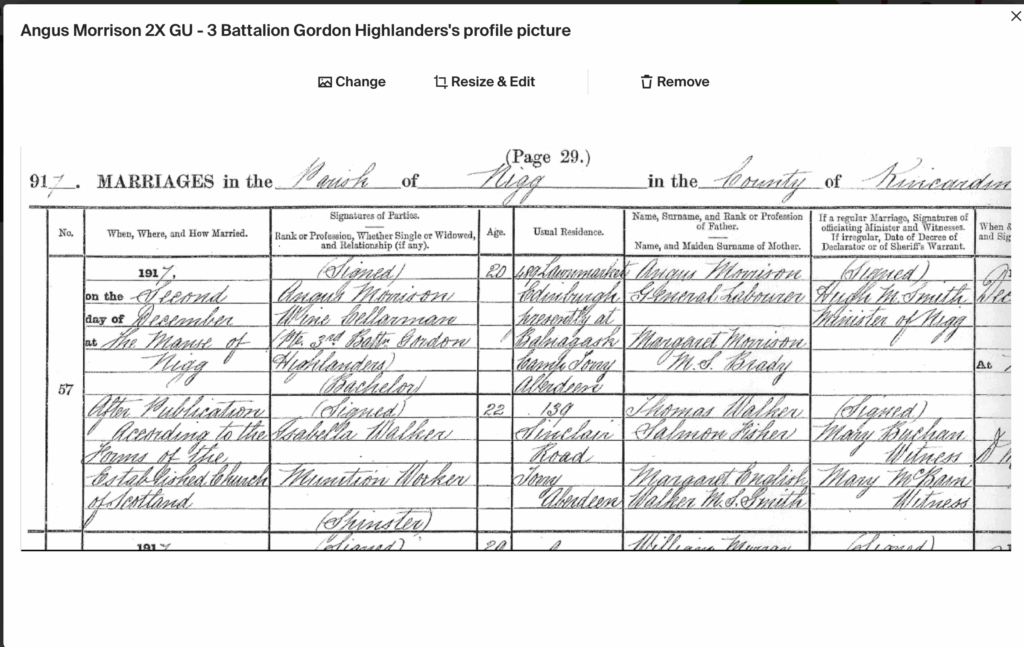 Angus Morrison 2X GU - 3 Battalion Gordon Highlanders's profile picture
Change
Resize & Edit
Remove
(Page 29.)
917. MARRIAGES in the Parish of Nigg in the County of Kincardin
No.
When, Where, and How Married.
Signatures of Parties.
Rank or Profession, Whether Single or Widowed, and Relationship (if any).
Age.
Usual Residence.
Name, Surname, and Rank or Profession of Father.
Name, and Maiden Surname of Mother.
If a regular Marriage, Signatures of officiating Minister and Witnesses.
If irregular, Date of Decree of Declarator or of Sheriff's Warrant.
When &
and Sig
57
1917,
on the Second
day of December
at The Manse of
Nigg
After Publication
According to the
Forms of the
Established Church
of Scotland
(Signed)
Angus Morrison
Wine Cellarman
(Pte. 3rd Battn. Gordon
Highlanders)
(Bachelor)
(Signed)
Isabella Walker
Munition Worker
(Spinster)
20
22
Lawnmarket
Edinburgh
presently at
Camp Torry
Aberdeen
139
Sinclair
Road
Torry
Aberdeen
Angus Morrison
General Labourer
Margaret Morrison
M.S. Brady
Thomas Walker
Salmon Fisher
Margaret English
Walker M.S. Smith
(Signed)
Hugh M. Smith
Minister of Nigg
(Signed)
Mary Buchan
Witness
Mary McBain
Witness
Dec
At
1917
(Signed)
29
William
(Signed)